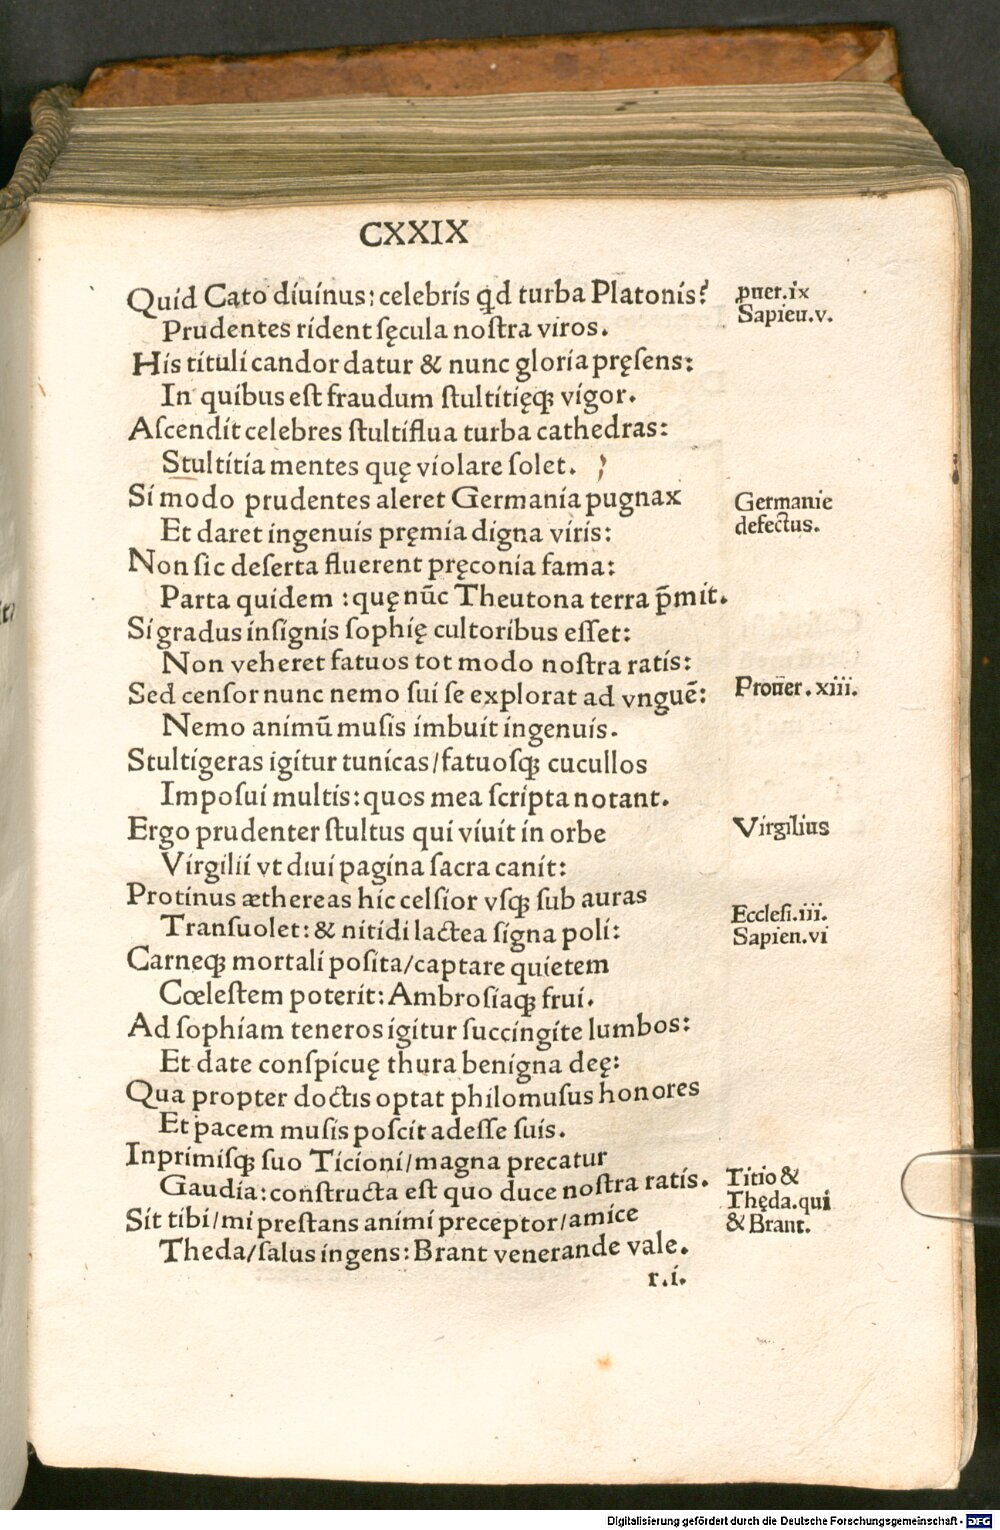 CXXIX
Quid Cato diuinus: celebris qd turba Platonis?
Prudentes rident sęcula nostra viros.
His tituli candor datur & nunc gloria pręsens:
In quibus est fraudum stultitięqꝫ vigor.
Ascendit celebres stultiflua turba cathedras:
Stultitia mentes quę violare solet.
Si modo prudentes aleret Germania pugnax
Et daret ingenuis pręmia digna viris:
Non sic deserta fluerent pręconia fama:
Parta quidem : quę nūc Theutona terra p̄mit.
Si gradus insignis sophię cultoribus esset:
Non veheret fatuos tot modo nostra ratis:
Sed censor nunc nemo sui se explorat ad vnguē:
Nemo animū musis imbuit ingenuis.
Stultigeras igitur tunicas/fatuosqꝫ cucullos
Imposui multis: quos mea scripta notant.
Ergo prudenter stultus qui viuit in orbe
Virgilii vt diui pagina sacra canit:
Protinus æthereas hic celsior vsqꝫ sub auras
Transuolet: & nitidi lactea signa poli:
Carneqꝫ mortali posita/captare quietem
Cœlestem poterit: Ambrosiaqꝫ frui.
Ad sophiam teneros igitur succingite lumbos:
Et date conspicuę thura benigna deę:
Qua propter doctis optat philomusus honores
Et pacem musis poscit adesse suis.
Inprimisqꝫ suo Ticioni/magna precatur
Gaudia: constructa est quo duce nostra ratis.
Sit tibi/mi prestans animi preceptor/amice
Theda/salus ingens: Brant venerande vale.
r.i.
ꝓuer.ix
Sapieu.v.
Germanie
defectus.
Proūer. xiii.
Virgilius
Ecclesi.iii.
Sapien.vi
Titio &
Thęda.qui
& Brant.
Digitalisierung gefördert durch die Deutsche Forschungsgemeinschaft - DFG